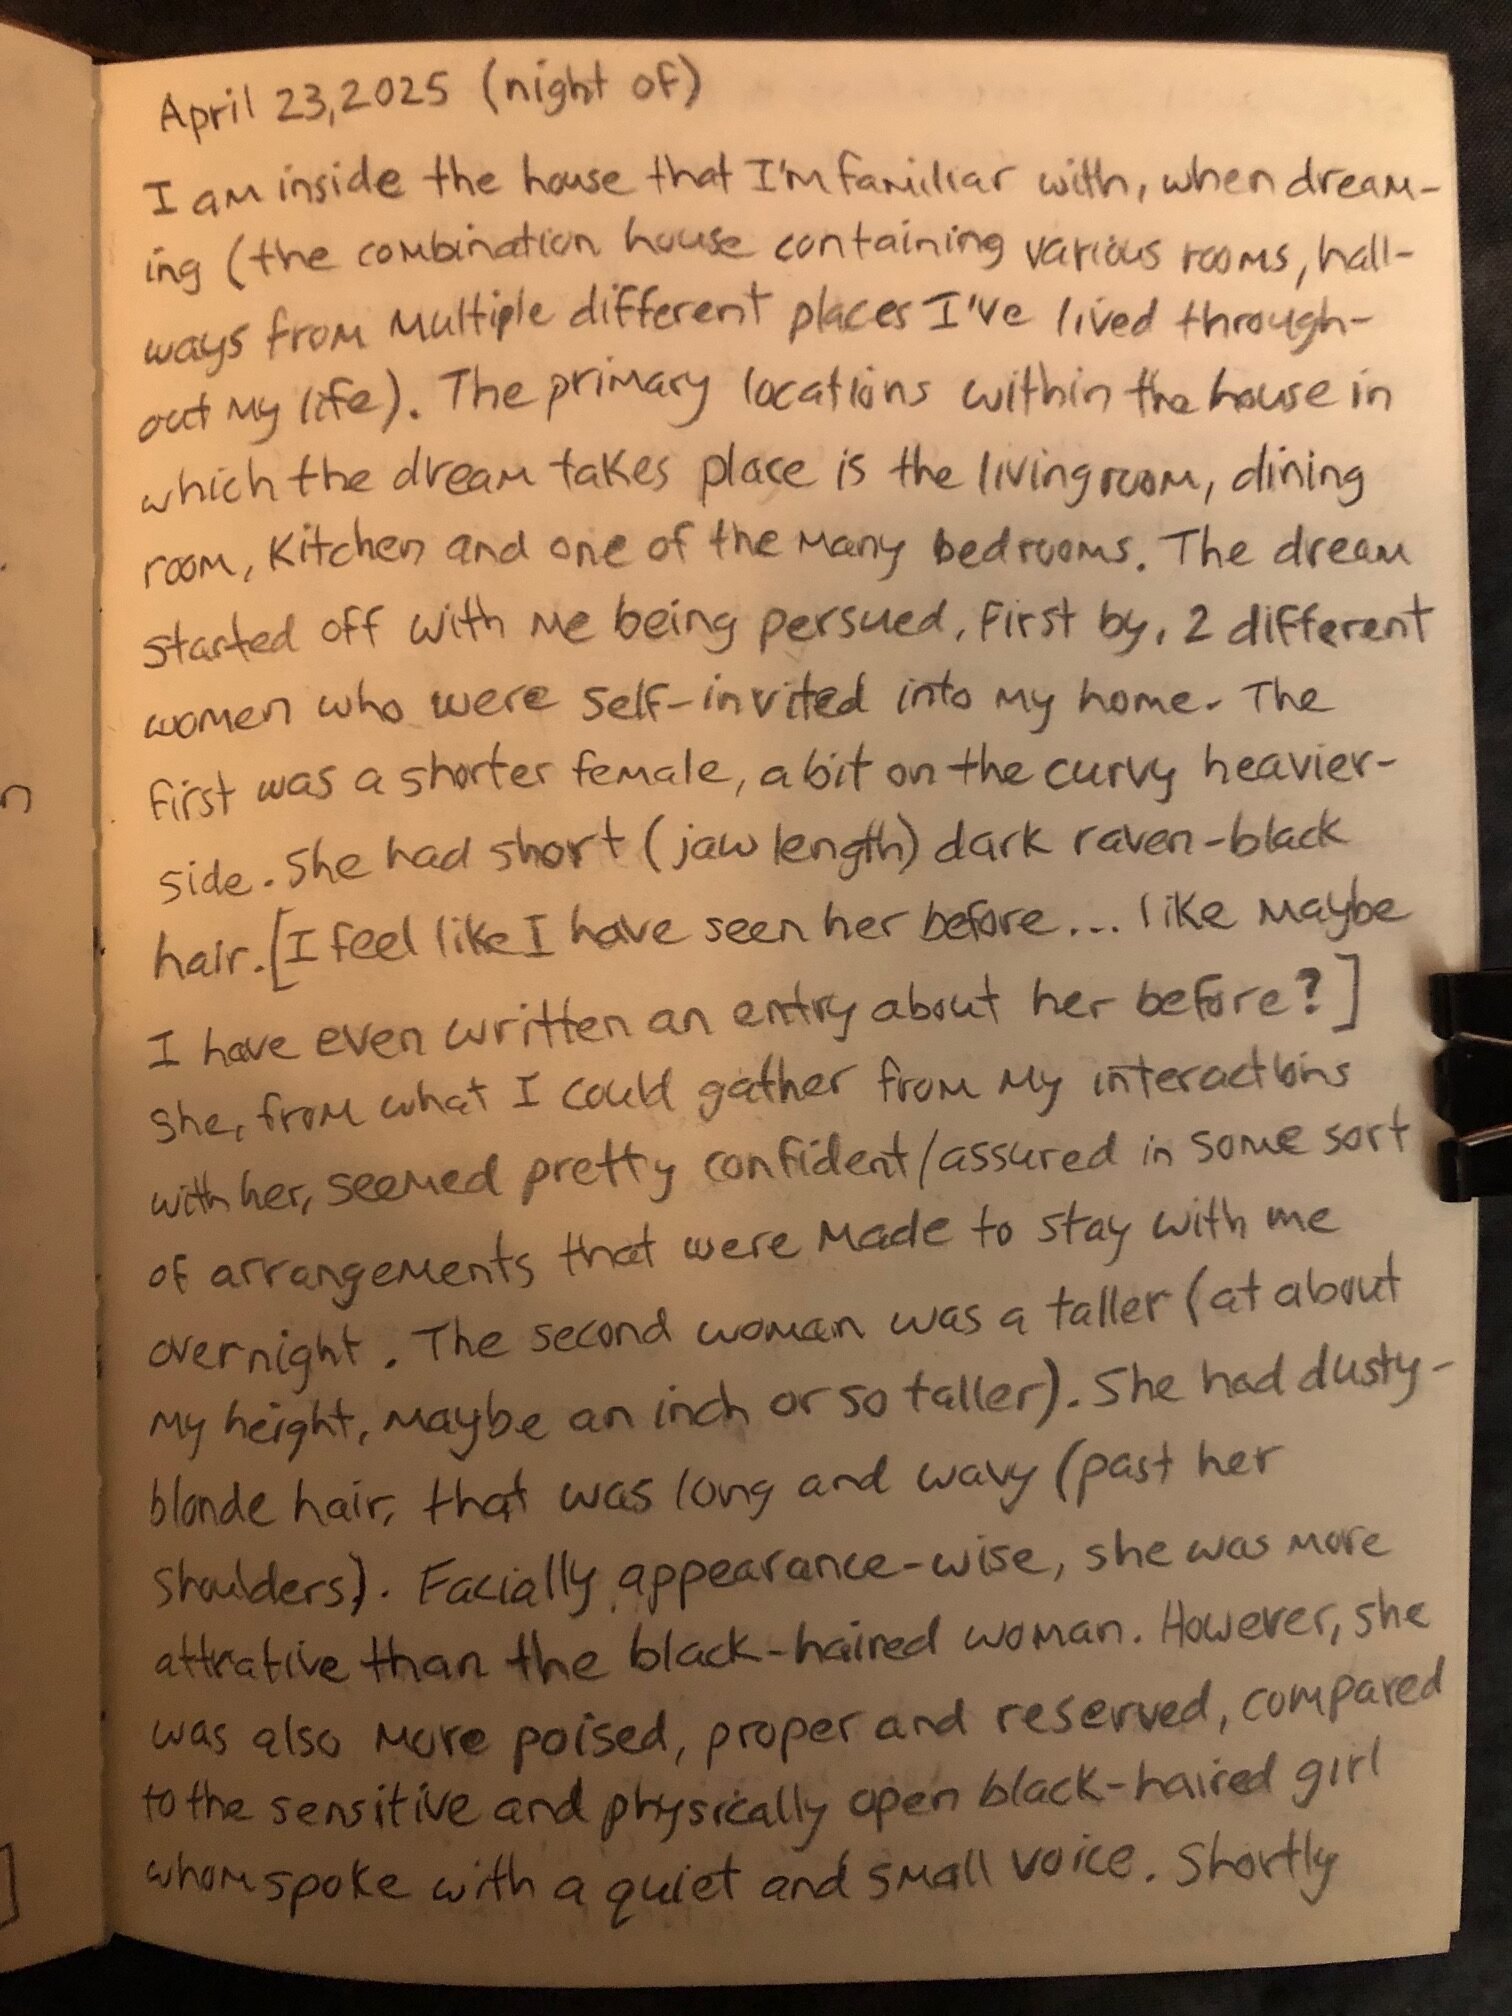 April 23, 2025 (night of)
I am inside the house that I'm familiar with, when dream-
ing (the combination house containing various rooms, hall-
ways from multiple different places I've lived through-
out my life). The primary locations within the house in
which the dream takes place is the livingroom, dining
room, kitchen and one of the many bedrooms. The dream
started off with me being persued, first by, 2 different
women who were self-invited into my home. The
first was a shorter female, a bit on the curvy heavier-
side. She had short (jaw length) dark raven-black
hair. [I feel like I have seen her before... like maybe
I have even written an entry about her before?]
She, from what I could gather from my interactions
with her, seemed pretty confident/assured in some sort
of arrangements that were made to stay with me
overnight. The second woman was a taller (at about
my height, maybe an inch or so taller). She had dusty-
blonde hair, that was long and wavy (past her
shoulders). Facially appearance-wise, she was more
attrative than the black-haired woman. However, she
was also more poised, proper and reserved, compared
to the sensitive and physically open black-haired girl
whom spoke with a quiet and small voice. Shortly
n
]